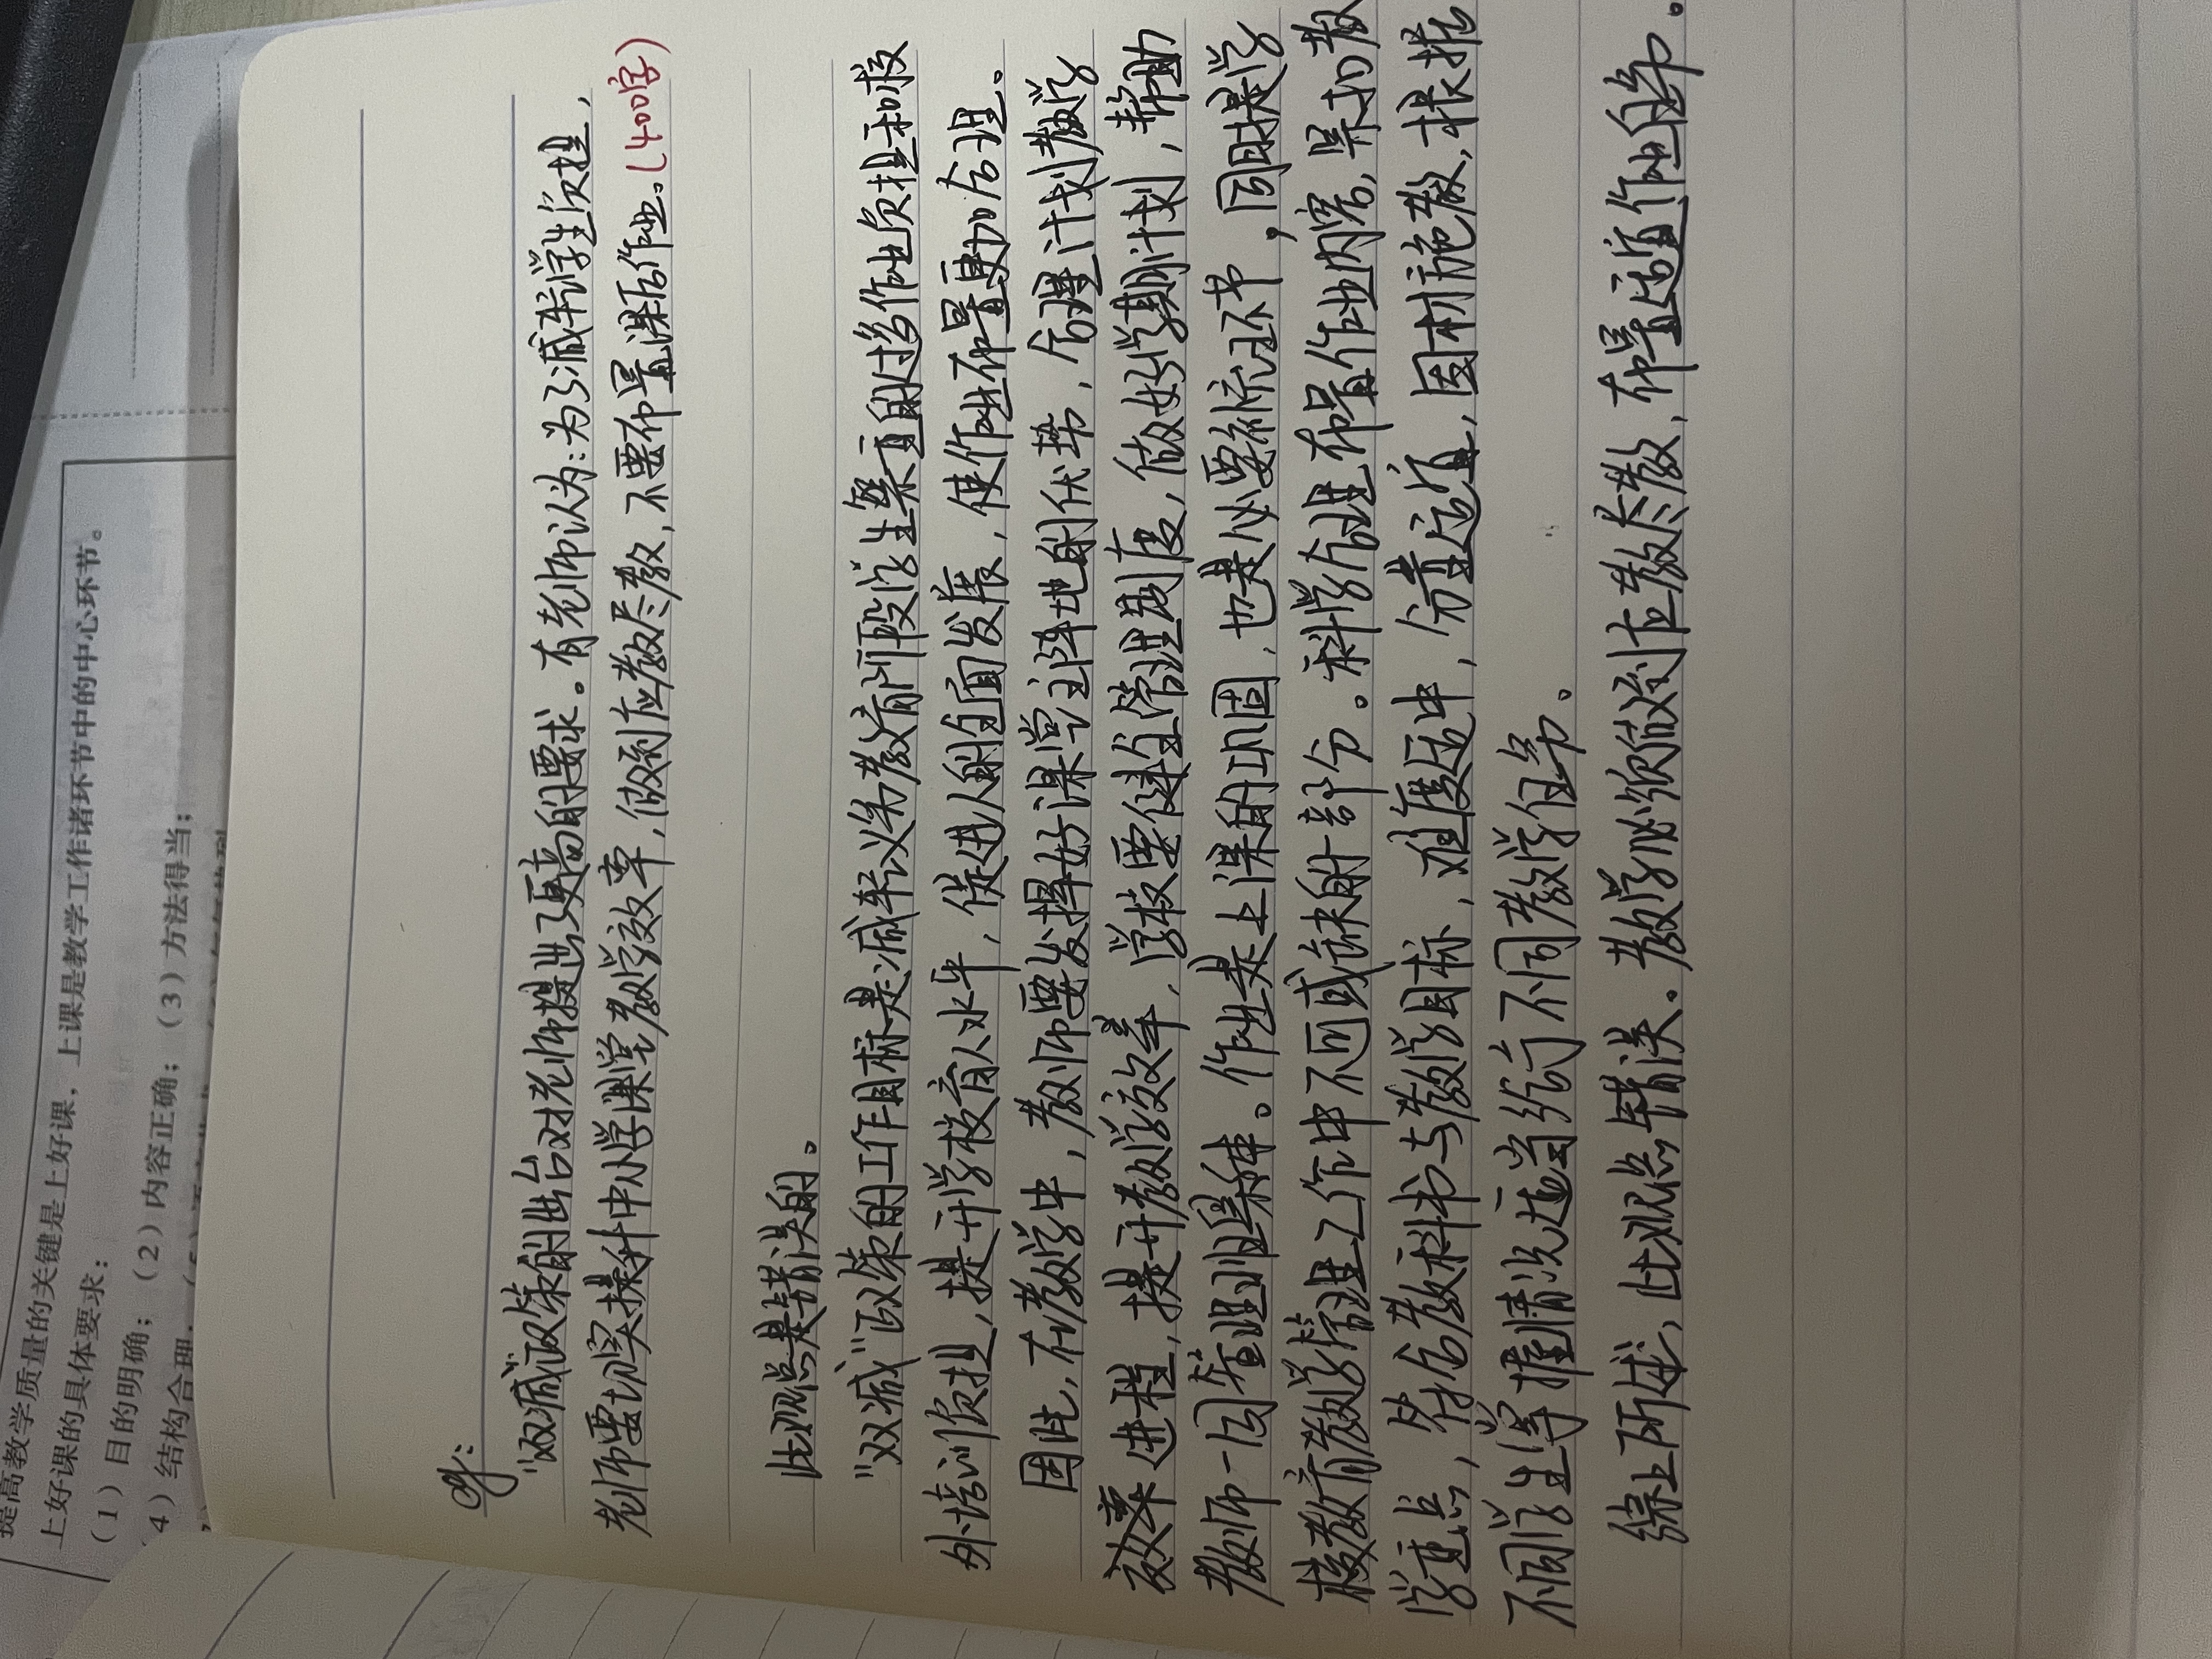 提高教学质量的关键是上好课，上课是教学工作诸环节中的中心环节。
上好课的具体要求：
（1）目的明确；（2）内容正确；（3）方法得当；
（4）结构合理；
eg:
“双减”政策的出台对老师提出了更高的要求。有老师认为：为了减轻学生负担，
老师要切实提升中小学课堂教学效率，做到应教尽教，不要布置课后作业。(400字)
此观点是错误的。
“双减”政策的工作目标是：减轻义务教育阶段学生繁重的过多作业负担和校
外培训负担，提升学校育人水平，促进人的全面发展，使作业布置更加合理。
因此，在教学中，教师要发挥好课堂主阵地的优势，合理计划教学
效率进程，提升教学效率，学校要健全管理制度，做好学期计划，帮助
教师一因管理业果种。作业是上课的巩固，也是必要补充环节，同时是学
校教育教学管理工作中不可或缺的部分。科学合理布置作业内容，紧扣教
学重点，符合教科书与教学目标，难度适中，分量适宜，因材施教，根据
不同学生掌握情况适当给予不同教学任务。
综上所述，此观点错误。教学必须做到应教尽教，布置适宜作业任务。